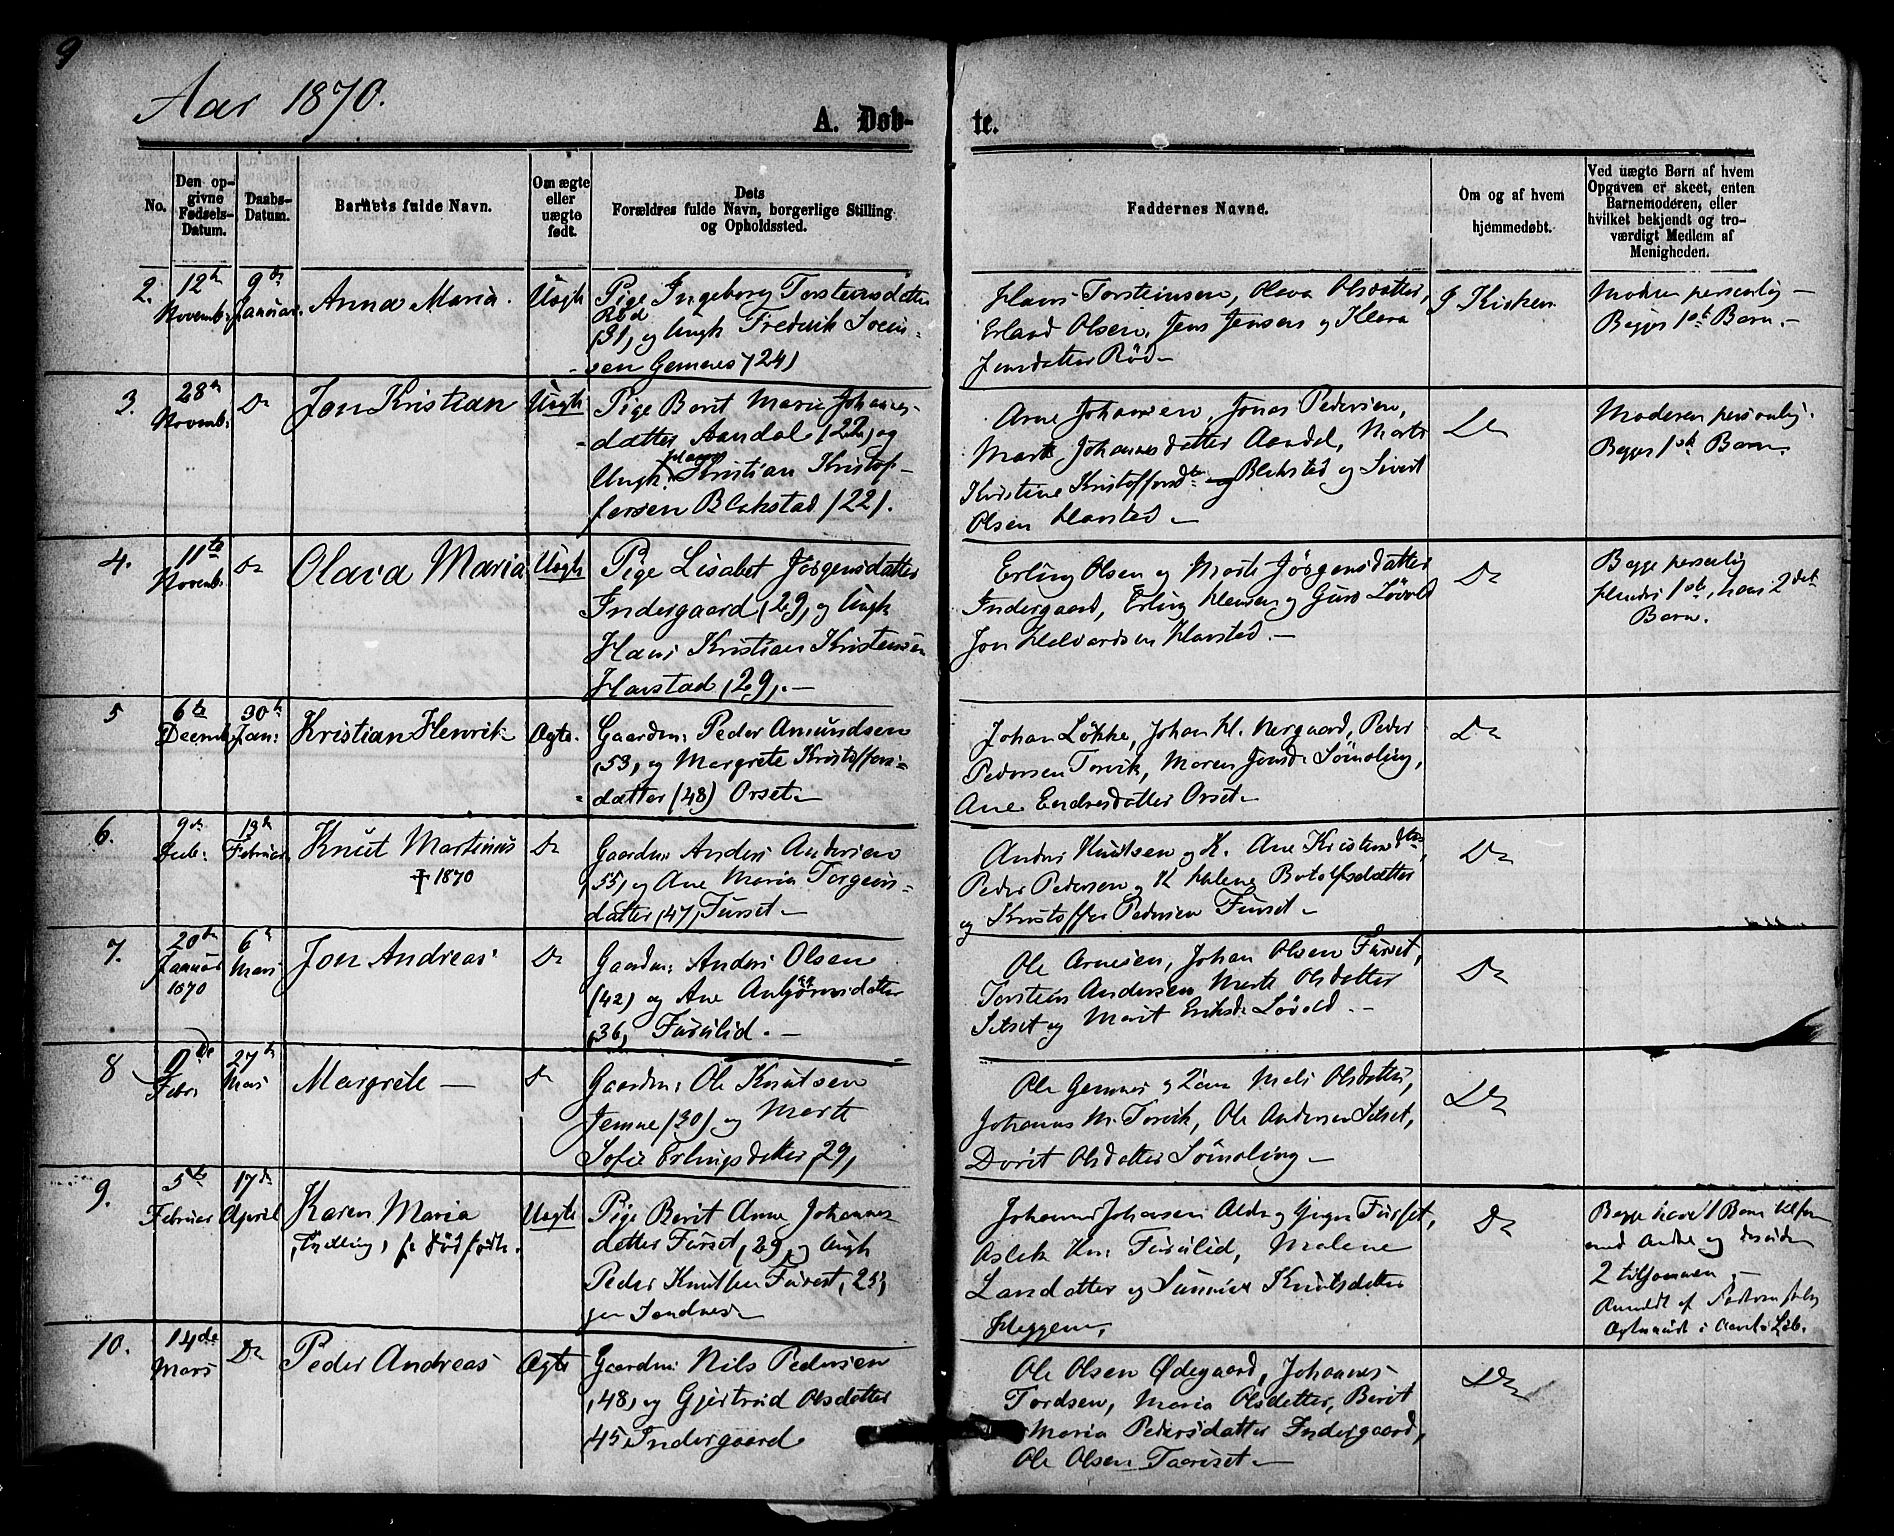 9
Aar 1870.
A. Døbte.
No.
Den opgivne Fødsels-Datum.
Daabs-Datum.
Barnets fulde Navn.
Om ægte eller uægte født.
Dets Forældres fulde Navn, borgerlige Stilling og Opholdssted.
Faddernes Navne.
Om og af hvem hjemmedøbt.
Ved uægte Børn af hvem Opgaven er skeet, enten Barnemoderen, eller hvilket bekjendt og troværdigt Medlem af Menigheden.
2.
12te Novemb.
9de Januar
Anna Maria.
Uægte
Pige Ingeborg Torsteinsdatter
Rød
(31) og Ungk Fredrik
Gemnes (24)
Hans Torsteinsen, Olava Olsdatter,
Erland Olsen, Jens Jensen og
Jensdatter Rød
I Kirken
Modren personlig
Begges 1ste Barn.
3.
28de Novemb.
Do
Jon Kristian
Uægte
Pige Berit Marie Johannes-
datter Aandal (22) og
Ungk. Kristian Kristof-
fersen Blekstad (22).
Arne Johansen, Jonas Pedersen,
Marte Johannesdatter Aandal, Marte
Kristine Kristoffersdtr Blekstad og Sivert
Olsen Harstad
Do
Moderen personlig.
Begges 1ste Barn.
4.
11te Novemb.
Do
Olava Maria
Uægte
Pige Lisabet Jørgensdatter
Indergaard (29) og Ungk
Hans Kristian Kristensen
Harstad (29).
Erling Olsen og Marte Jørgensdatter
Indergaard, Erling Hansen og Guro Løvold
Jon Halvordsen Harstad.
Do
Begge personlig
Hendes 1ste, hans 2det
Barn.
5
6te Decemb
30te Jan:
Kristian Henrik
Ægte.
Gaardm: Peder Amundsen
(53) og Margrete Kristoffers-
datter (48) Orset
Johan Løkke, Johan H. Nergaard, Peder
Pedersen Torvik, Maren Jonsd. Sømoling,
Ane Endresdatter Orset
Do
6.
9de Decb:
13de Februar
Knut Martinus
† 1870
Do
Gaardm: Anders Andersen
(55) og Ane Maria
datter (47) Furset
Anders Knutsen og K. Ane Kristensdtr,
Peder Pedersen og K Malene Botolfsdatter
og Kristoffer Pedersen Furset
Do
7.
20de Januar 1870
6te Mars
Jon Andreas
Do
Gaardm: Anders Olsen
(42) og Ane
(36) Farulid.
Ole Arnesen, Johan Olsen Furset,
Torstein Andersen, Marte Olsdatter
Silset og Marit Eriksd. Løvold.
Do
8
Febr
27de Mars
Margrete
Do
Gaardm: Ole Knutsen
Jemne (30) og Marte
Sofie Erlingsdatter (29)
Ole Gemnes og Mali Olsdatter,
Johannes M. Torvik, Ole Andersen Silset,
Dorit Olsdatter Sømoling
Do
9.
5te Februar
17de April
Karen Maria
(Tvilling) dødfødt.
Uægte
Pige Berit Anne Johannes-
datter Furset (29) og Ungk
Peder Knutsen Furset (25)
Johannes Johansen og Furset,
Aslak Farulid, Malene
Larsdatter og Knutsdatter
Heggem.
Do
Begge have 1 Barn
med Andre og desuden
2 tilsammen
Anmeldt af
10.
14de Mars
Do
Peder Andreas
Ægte
Gaardm: Nils Pedersen
(48) og Gjertrud Olsdatter
45 Indergaard
Ole Olsen Ødegaard, Johannes
Tordsen, Maria Olsdatter, Berit
Maria Pedersdatter Indergaard,
Ole Olsen
Do